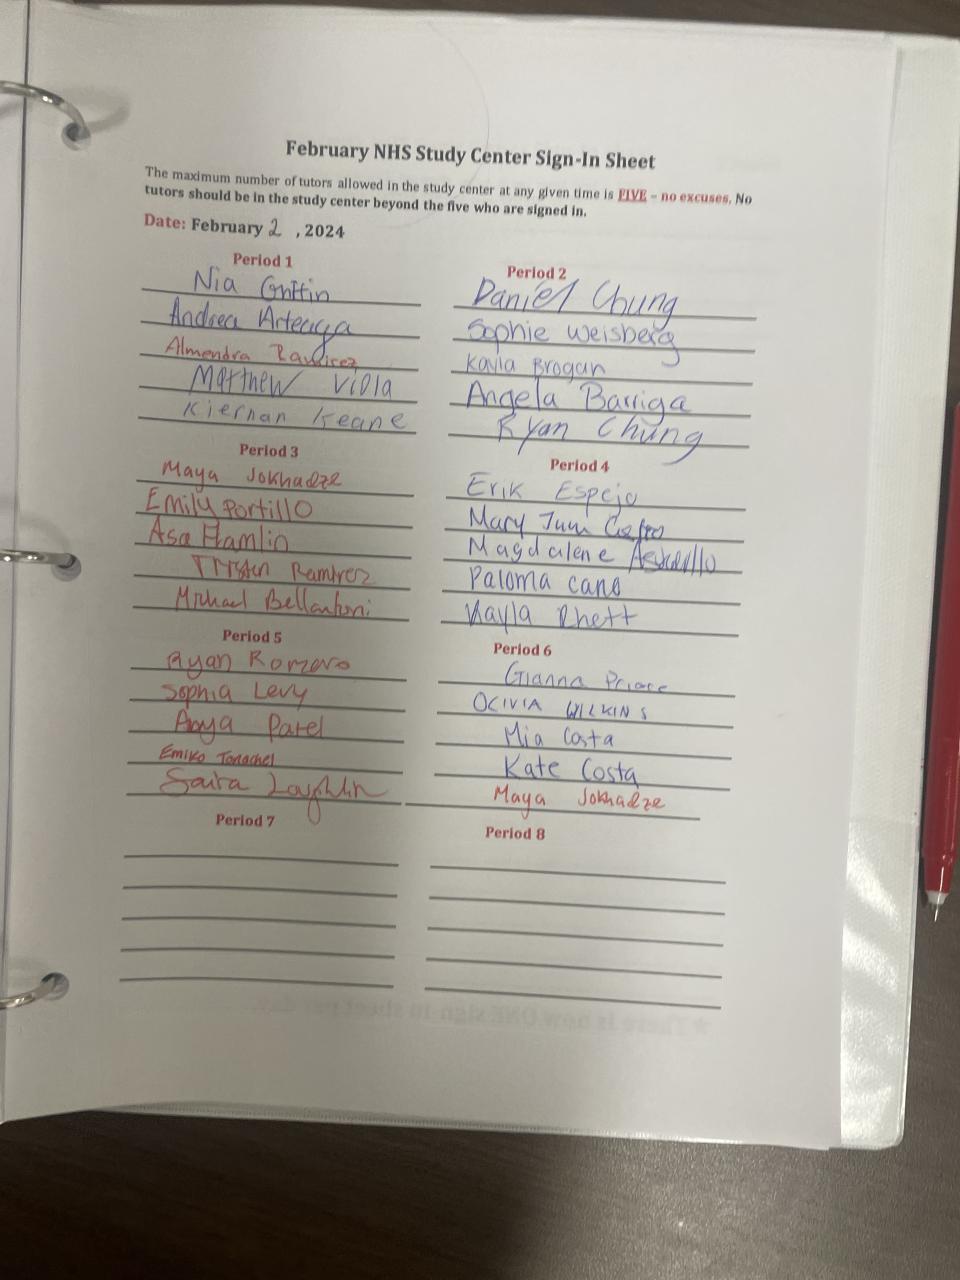 February NHS Study Center Sign-In Sheet
The maximum number of tutors allowed in the study center at any given time is FIVE – no excuses. No
tutors should be in the study center beyond the five who are signed in.
Date: February 2 , 2024
Period 1
Nia Griffin
Andrea Arteaga
Almendra Ramirez
Matthew Viola
Kiernan Keane
Period 2
Daniel Chung
Sophie Weisberg
Kayla Brogan
Angela Barriga
Ryan Chung
Period 3
Maya Jokhadze
Emily Portillo
Asa Hamlin
Tristen Ramirez
Michael Bellantoni
Period 4
Erik Espejo
Mary Jum
Magdalene
Paloma Cano
Kayla Rhett
Period 5
Ryan Romero
Sophia Levy
Anya Patel
Emiko
Saira Laughlin
Period 6
Gianna Priore
OLIVIA WILKINS
Mia Costa
Kate Costa
Maya Jokhadze
Period 7
Period 8